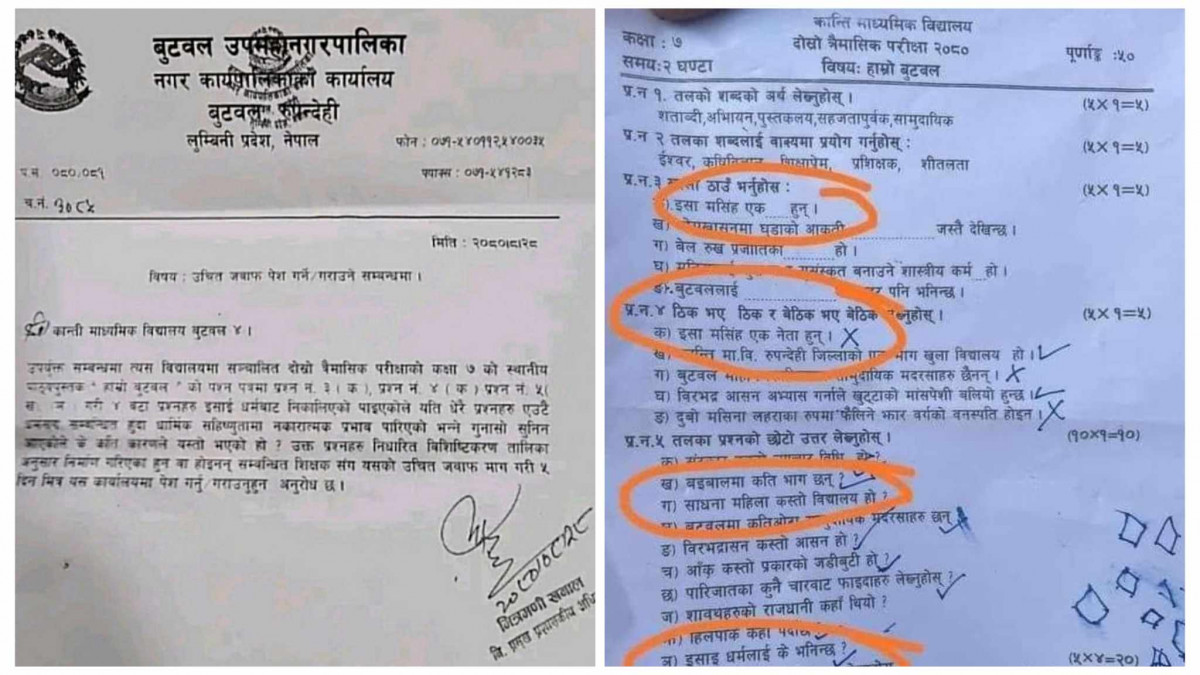 बुटवल उपमहानगरपालिका
नगर कार्यपालिकाको कार्यालय
बुटवल, रुपन्देही
लुम्बिनी प्रदेश, नेपाल
फोन : ०७१-५४०११२,५४००३५
फ्याक्स : ०७१-५४१२८३
प.सं. ०८०/०८१
च.नं. १०८५
मिति : २०८०।८।२८
विषय : उचित जवाफ पेश गर्ने/गराउने सम्बन्धमा ।
श्री कान्ती माध्यमिक विद्यालय बुटवल ४ ।
उपर्युक्त सम्बन्धमा त्यस विद्यालयमा सञ्चालित दोस्रो त्रैमासिक परीक्षाको कक्षा ७ को स्थानीय
पाठ्यपुस्तक "हाम्रो बुटवल" को प्रश्न पत्रमा प्रश्न नं. ३ (क), प्रश्न नं. ४ (क) प्रश्न नं. ५(
ख, ञ) गरी ४ वटा प्रश्नहरु इसाई धर्मबाट निकालिएको पाइएकोले यति धेरै प्रश्नहरु एउटै
सम्बन्धित हुदा धार्मिक सहिष्णुतामा नकारात्मक प्रभाव पारिएको भन्ने गुनासो सुनिन
आएकोले के कति कारणले यस्तो भएको हो ? उक्त प्रश्नहरु निर्धारित विशिष्टिकरण तालिका
अनुसार निर्माण गरिएका हुन वा होइनन् सम्बन्धित शिक्षक संग यसको उचित जवाफ माग गरी ५
दिन भित्र यस कार्यालयमा पेश गर्नु/गराउनुहुन अनुरोध छ ।
२०८०।०८।२८
मित्रमणी खनाल
नि. प्रमुख प्रशासकीय अधि
कान्ति माध्यमिक विद्यालय
कक्षा : ७
दोस्रो त्रैमासिक परीक्षा २०८०
पूर्णाङ्क :५०
समय:२ घण्टा
विषय: हाम्रो बुटवल
प्र.न १. तलको शब्दको अर्थ लेख्नुहोस् । (५×१=५)
शताब्दी,अभियान,पुस्तकलय,सहजतापुर्वक,सामुदायिक
प्र.न २ तलका शब्दलाई वाक्यमा प्रयोग गर्नुहोस् : (५×१=५)
ईश्वर, शिक्षाप्रेम, प्रशिक्षक, शीतलता
प्र.न.३ खाली ठाउँ भर्नुहोस : (५×१=५)
क).इसा मसिंह एक ....हुन् ।
ख) घुडाको आकृती .............. जस्तै देखिन्छ ।
ग) बेल रुख प्रजातिका ........ हो ।
घ) सुसंस्कृत बनाउने शास्त्रीय कर्म हो ।
ङ).बुटवललाई .............. पनि भनिन्छ ।
प्र.न.४ ठिक भए ठिक र बेठिक भए बेठिक लेख्नुहोस् । (५×१=५)
क) इसा मसिंह एक नेता हुन् ।
ख) कान्ति मा.वि. रुपन्देही जिल्लाको एक भाग खुला विद्यालय हो ।
ग) बुटवल सामुदायिक मदरसाहरु छैनन् ।
घ) विरभद्र आसन अभ्यास गर्नाले खुट्टाको मांसपेशी बलियो हुन्छ ।
ङ) दुबो मसिना लहराका रुपमा फैलिने झार वर्गको वनस्पति होइन ।
प्र.न.५ तलका प्रश्नको छोटो उत्तर लेख्नुहोस् । (१०×१=१०)
ख) बइबालमा कति भाग छन् ?
ग) साधना महिला कस्तो विद्यालय हो ?
घ) बुटवलमा कतिओटा सामुदायिक मदरसाहरु छन्
ङ) विरभद्रासन कस्तो आसन हो ?
च) आँक कस्तो प्रकारको जडीबुटी हो ?
छ) पारिजातका कुनै चारवाट फाइदाहरु लेख्नुहोस् ?
ज) शाक्यहरुको राजधानी कहाँ थियो ?
झ) हिलपार्क कहाँ पर्दछ
ञ) इसाइ धर्मलाई के भनिन्छ ?
(५×४=२०)